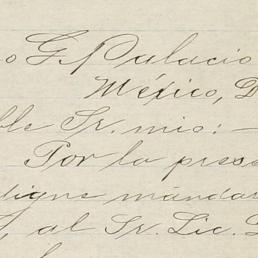 o G. Palacio
México, D
ble Sr. mio:—
Por la pres
digne mandar
, al Sr. Lic. D